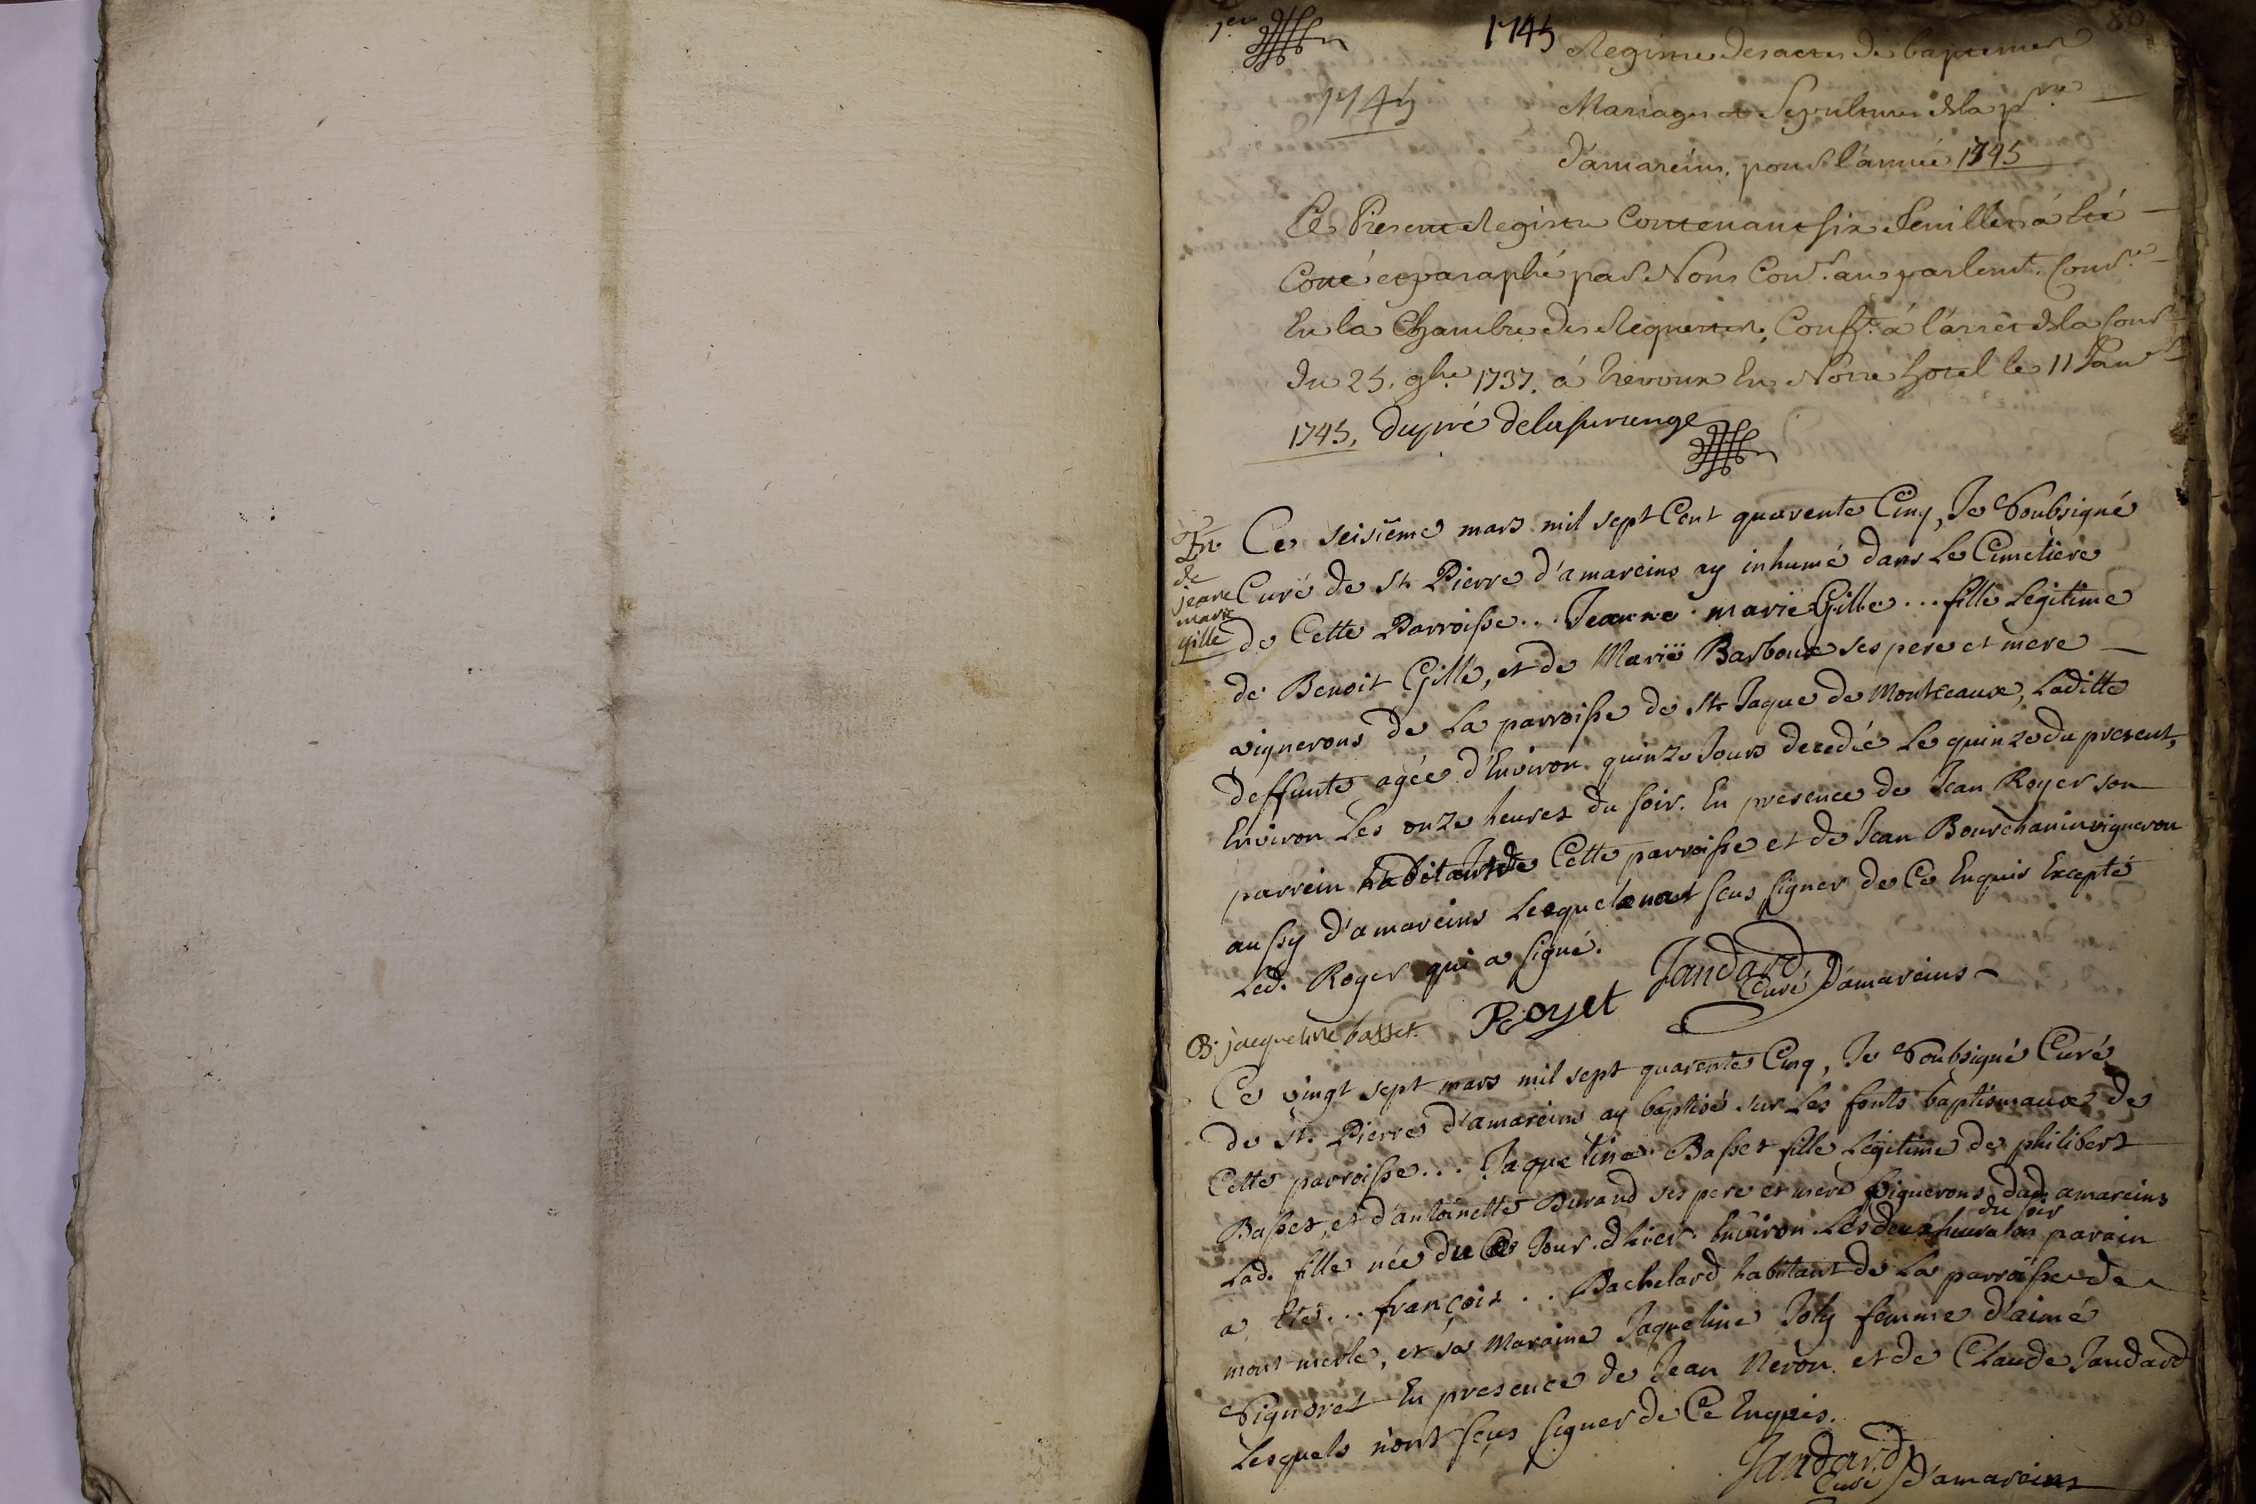 1er
1745
80
Registre des actes de baptemes
1745
Mariages et Sepultures dela psse
d'amareins, pour l'année 1745
Le Present Registre Contenant six feuillets á été
Coté et paraphé par Nous Conr. au parlemt. Comre.
En la Chambre des Requestes, Conft. á l'arrêt dela Cour
du 25. 9bre 1737. á trevoux En Nôtre hotel le 11 Janr
1745, Dupré delasurange
En.
de
jeane
marie
gille
Ce seisiême mars mil sept Cent quarente Cinq, Je Soubsigné
Curé de St. Pierre d'amareins ay inhumé dans Le Cimetiere
de Cette Parroisse... Jeanne marie Gille... fille Légitime
de Benoit Gille, et de Marië Barboux ses pere et mere
vignerons de La parroisse de St. Jaque de Montceaux, Laditte
deffunte agée d'Environ quinze Jours decedée Le quinze du present,
Environ Les onze heures du soir. En presence de Jean Royer son
parrein habitant de Cette parroisse et de Jean Bourchanin vigneron
aussy d'amareins Lesquels n'ont sçus signer de Ce Enquis Excepté
Led. Royer qui a signé.
Royet Jandard
Curé D'amareins
B. jacqueline basset
Ce vingt sept mars mil sept quarente Cinq, Je Soubsigné Curé
de St. Pierre d'amareins ay baptisé sur Les fonts baptismaux de
Cette parroisse... Jaqueline Basset fille Légitime de philibert
Basset, et d'antoinette Durand ses pere et mere vignerons dud. amareins
du soir
Lad. fille née du Jour d'hier Environ Les deux heures son parain
a Eté... françois .. Bachelard habitant de La parroisse de
mont merle, et sa Maraine Jaqueline Joly femme d'aimé
Signoret En presence de Jean Neron et de Claude Jandard
Lesquels n'ont sçus signer de Ce Enquis.
Jandard
Curé D'amareins